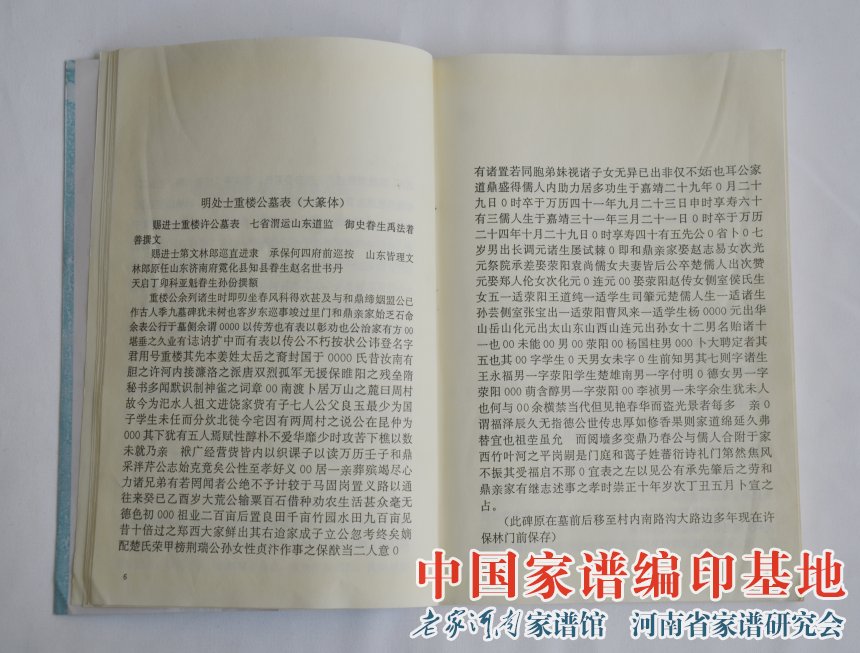 明处士重楼公墓表（大篆体）
赐进士重楼许公墓表　七省渭运山东道监　御史眷生禹法着
善撰文
赐进士第文林郎巡直进隶　承保何四府前巡按　山东皆理文
林郎原任山东济南府霓化县知县眷生赵名世书丹
天启丁卯科亚魁眷生孙份撰额
重楼公余列诸生时即叨坐春风科得欢甚及与和鼎缔姻盟公已
作古人季九墓碑犹未树也客岁东巡事竣过里门和鼎亲家始乏石命
余表公行于墓侧余谓0000以传芳也有表以彰劝也公治家有方00
堪垂之久业有誌讷扩中而有表以传公不朽按状公讳登名字
君用号重楼其先本姜姓太岳之裔封国于0000氏昔汝南有
胆之许河内接濂洛之派唐双烈孤军无援保睢阳之残垒隋
秘书多闻默识制神雀之词章00南渡卜居万山之麓曰周村
故今为汜水人祖文进饶家赀有子七人公父良玉最少为国
子学生未任而分炊北徙今宅因有两周村之说公在昆仲为
000其下犹有五人焉赋性醇朴不爱华靡少时攻苦下樵以数
未就乃亲　楸广经营赀皆内以织课子以读万历壬子和鼎
采泮芹公志始克竟矣公性至孝好义00居一亲葬殡竭尽心
力诸兄弟有若罔闻者公绝不予计较于马固岗置义路以通
往来癸已乙酉岁大荒公输粟百石借种劝农生活甚众毫无
德色初000祖业二百亩后置良田千亩竹园水田九百亩见
昔十倍过之郑西大家鲜出其右迨家成子立公忽考终矣嫡
配楚氏荣甲榜荆瑞公孙女性贞汴作事之保猷当二人意0
6
有诸置若同胞弟妹视诸子女无异已出非仅不妬也耳公家
道鼎盛得儒人内助力居多功生于嘉靖二十九年0月二十
九日0时卒于万历四十一年九月二十三日申时享寿六十
有三儒人生于嘉靖三十一年三月二十一日0时卒于万历
二十四年十月二十九日0时享寿四十有五先公0省卜0七
岁男出长调元诸生屡试棘0即和鼎亲家娶赵志易女次光
元祭院承差娶荥阳袁尚儒女夫妻皆后公卒楚儒人出次赞
元娶郑人伦女次化元0连元00娶荥阳赵传女何官侯氏生
女五一适荥阳王道纯一适学生司肇元楚儒人生一适诸生
孙芸侧室张宝出一适荥阳曹凤来一适学生杨0000元出华
山岳山化元出太山东山西山连元出孙女十二男名贻诸十
一也00未能00男00荥阳00杨国柱男000卜大聘定者其
五也其00字学生0天男女未字0生前知男其七则字诸生
王永福男一字荥阳学生楚雄南男一字付明0德女男一字
荥阳000萌含醇男一字荥阳00李祯男一未字余生犹未人
也何与00余横禁当代但见艳春华而盗光景者每多　亲0
谓福泽辰久无指德公世传忠厚如修香果则家道绵延久弗
替宜也祖茔虽允　而阅墙多变鼎乃春公与儒人合附于家
西竹叶河之平岗剐是门庭和蔼子姓蕃衍诗礼门第然焦风
不振其受福启不那0宜表之左以见公有承先肇后之劳和
鼎亲家有继志述事之孝时崇正十年岁次丁丑五月卜宣之
占。
（此碑原在墓前后移至村内南路沟大路边多年现在许
保林门前保存）
中国家谱编印基地
老家河南家谱馆　河南省家谱研究会